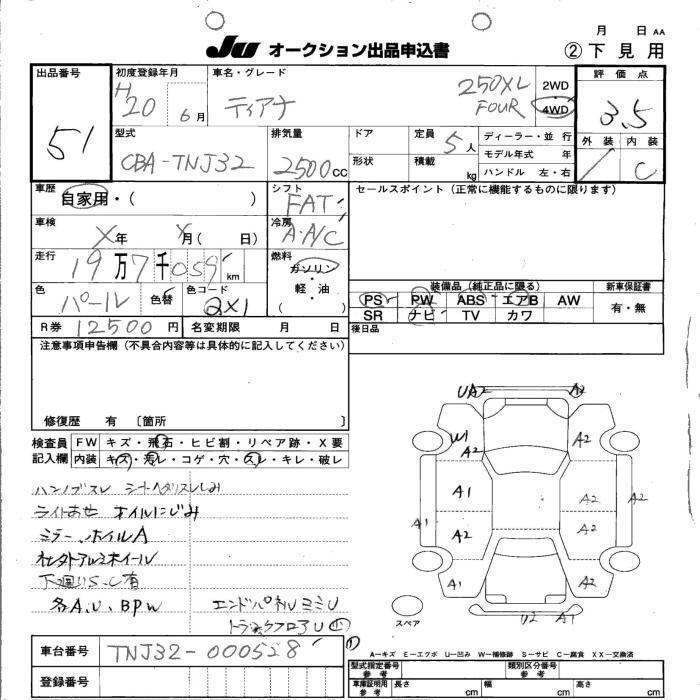 月 日 AA
JU オークション出品申込書 ②下見用
出品番号
51
初度登録年月
H20 6月
車名・グレード
ティアナ
250XL
FOUR
2WD
4WD
評価点
3.5
外装 内装
C
型式
CBA-TNJ32
排気量
2500cc
ドア
形状
定員
5人
積載 kg
ディーラー・並行
モデル年式 年
ハンドル 左・右
車歴
自家用・( )
シフト
FAT
セールスポイント(正常に機能するものに限ります)
車検
X年 X月( 日)
冷房
A・A/C
走行
19万7千059km
燃料
ガソリン
・
軽・油
( )
色
パール
色替
色コード
2X1
装備品(純正品に限る)
PS PW ABS エアB AW
SR ナビ TV カワ
新車保証書
有・無
R券 12500円
名変期限 月 日
後日品
注意事項申告欄(不具合内容等は具体的に記入してください)
修復歴 有 〔箇所 〕
検査員
記入欄
FW キズ・飛石・ヒビ割・リペア跡・X要
内装 キズ・汚レ・コゲ・穴・スレ・キレ・破レ
ハンドルスレ
ライトあせ オイルにじみ
ミラー、ホイルA
社外アルミホイール
下廻りS、C有
各A、U、BPW
エンドパネルミミU
トランクフロアU
UA2 A2
W1 A2 A2
A1 A2
A1 A2 A2
A2
A1 A2
U2 A1
スペア
車台番号
TNJ32-000528
登録番号
A-キズ E-エクボ U-凹み W-補修跡 S-サビ C-腐食 XX-交換済
型式指定番号
参考
類別区分番号
参考
車庫証明用
参考
長さ cm
幅 cm
高さ cm